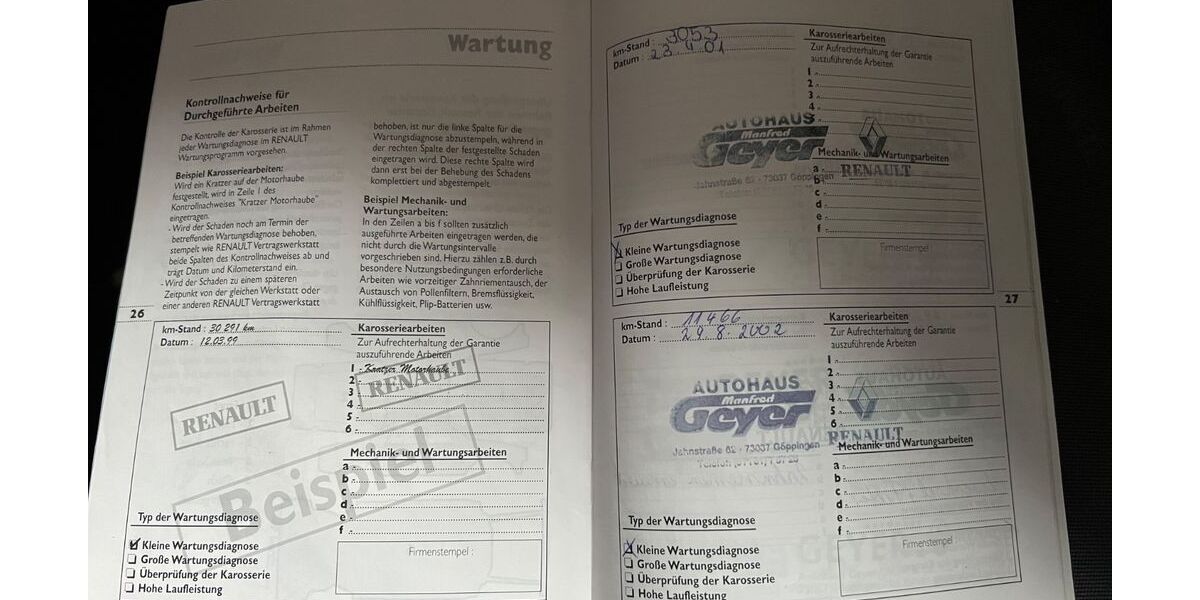 Wartung
Kontrollnachweise für
Durchgeführte Arbeiten
Die Kontrolle der Karosserie ist im Rahmen
jeder Wartungsdiagnose im RENAULT
Wartungsprogramm vorgesehen.
Beispiel Karosseriearbeiten:
Wird ein Kratzer auf der Motorhaube
festgestellt, wird in Zeile 1 des
Kontrollnachweises "Kratzer Motorhaube"
eingetragen.
- Wird der Schaden noch am Termin der
betreffenden Wartungsdiagnose behoben,
stempelt wie RENAULT Vertragswerkstatt
beide Spalten des Kontrollnachweises ab und
trägt Datum und Kilometerstand ein.
- Wird der Schaden zu einem späteren
Zeitpunkt von der gleichen Werkstatt oder
einer anderen RENAULT Vertragswerkstatt
behoben, ist nur die linke Spalte für die
Wartungsdiagnose abzustempeln, während in
der rechten Spalte der festgestellte Schaden
eingetragen wird. Diese rechte Spalte wird
dann erst bei der Behebung des Schadens
komplettiert und abgestempelt.
Beispiel Mechanik- und
Wartungsarbeiten:
In den Zeilen a bis f sollten zusätzlich
ausgeführte Arbeiten eingetragen werden, die
nicht durch die Wartungsintervalle
vorgeschrieben sind. Hierzu zählen z.B. durch
besondere Nutzungsbedingungen erforderliche
Arbeiten wie vorzeitiger Zahnriementausch, der
Austausch von Pollenfiltern, Bremsflüssigkeit,
Kühlflüssigkeit, Plip-Batterien usw.
26
km-Stand : 30 291 km
Datum : 12.03.99
RENAULT
Beispiel
Typ der Wartungsdiagnose
Kleine Wartungsdiagnose
Große Wartungsdiagnose
Überprüfung der Karosserie
Hohe Laufleistung
Karosseriearbeiten
Zur Aufrechterhaltung der Garantie
auszuführende Arbeiten
1 - Kratzer Motorhaube
2
RENAULT
3
4
5
6
Mechanik- und Wartungsarbeiten
a
b
c
d
e
f
Firmenstempel :
km-Stand : 3053
Datum : 23 4 01
AUTOHAUS
Manfred
Geyer
Jahnstraße 62 - 73037 Göppingen
RENAULT
Typ der Wartungsdiagnose
Kleine Wartungsdiagnose
Große Wartungsdiagnose
Überprüfung der Karosserie
Hohe Laufleistung
Karosseriearbeiten
Zur Aufrechterhaltung der Garantie
auszuführende Arbeiten
1
2
3
4
Mechanik- und Wartungsarbeiten
a
b
c
d
e
f
Firmenstempel
27
km-Stand : 11466
Datum : 29.8.2002
AUTOHAUS
Manfred
Geyer
Jahnstraße 62 - 73037 Göppingen
RENAULT
Typ der Wartungsdiagnose
Kleine Wartungsdiagnose
Große Wartungsdiagnose
Überprüfung der Karosserie
Hohe Laufleistung
Karosseriearbeiten
Zur Aufrechterhaltung der Garantie
auszuführende Arbeiten
1
2
3
4
5
6
Mechanik- und Wartungsarbeiten
a
b
c
d
e
f
Firmenstempel